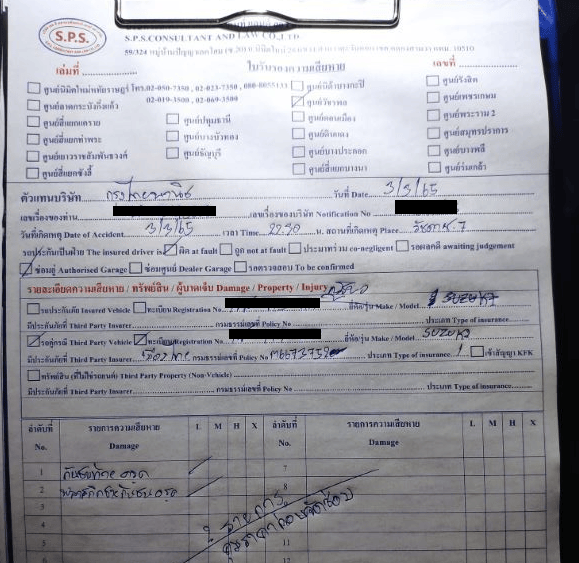 S.P.S.
S.P.S.CONSULTANT AND LAW CO.,LTD
59/324 หมู่บ้านปัญญาเลคโฮม 10510
เล่มที่ ใบรับรองความเสียหาย เลขที่
ศูนย์นิมิตใหม่/หทัยราษฎร์ โทร.02-050-7350, 02-023-7350, 080-0055133
02-019-3509, 02-069-3509
ศูนย์รังสิต
ศูนย์ลาดกระบัง/กิ่งแก้ว ศูนย์วัชรพล ศูนย์เพชรเกษม
ศูนย์สี่แยกแคราย ศูนย์ปทุมธานี ศูนย์ดอนเมือง ศูนย์พระราม 2
ศูนย์สี่แยกท่าพระ ศูนย์บางบัวทอง ศูนย์ดินแดง ศูนย์สมุทรปราการ
ศูนย์เยาวราช/สัมพันธวงศ์ ศูนย์ธัญบุรี ศูนย์บางปะกอก ศูนย์บางพลี
ศูนย์สี่แยกซังฮี้ ศูนย์สี่แยกบางนา ศูนย์ร่มเกล้า
ตัวแทนบริษัท กรุงไทยพานิช วันที่ Date 3/3/65
เลขเรื่องของท่าน เลขเรื่องของบริษัท Notification No
วันที่เกิดเหตุ Date of Accident 3/3/65 เวลา Time 22.30 น. สถานที่เกิดเหตุ Place
รถประกันเป็นฝ่าย The insured driver is ผิด at fault ถูก not at fault ประมาทร่วม co-negligent รอผลคดี awaiting judgement
ซ่อมอู่ Authorised Garage ซ่อมศูนย์ Dealer Garage รอตรวจสอบ To be confirmed
รายละเอียดความเสียหาย / ทรัพย์สิน / ผู้บาดเจ็บ Damage / Property / Injury
รถประกันภัย Insured Vehicle ทะเบียน Registration No ยี่ห้อ/รุ่น Make / Model SUZUKI
มีประกันภัยที่ Third Party Insurer กรมธรรม์เลขที่ Policy No ประเภท Type of Insurance
รถคู่กรณี Third Party Vehicle ทะเบียน Registration No ยี่ห้อ/รุ่น Make / Model SUZUKI
มีประกันภัยที่ Third Party Insurer กรมธรรม์เลขที่ Policy No ประเภท Type of insurance 1 เข้าสัญญา KFK
ทรัพย์สิน (ที่ไม่ใช่รถยนต์) Third Party Property (Non-Vehicle)
มีประกันภัยที่ Third Party Insurer กรมธรรม์เลขที่ Policy No ประเภท Type of insurance
ลำดับที่ No. รายการความเสียหาย Damage L M H X ลำดับที่ No. รายการความเสียหาย Damage L M H X
1 กันชนท้าย ครูด 7
2 8
3
4
5 11
12
2 รายการ